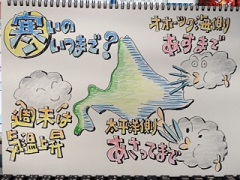 寒いの
いつまで?
オホーツク海側
あすまで
週末は
気温上昇
太平洋側
あさってまで